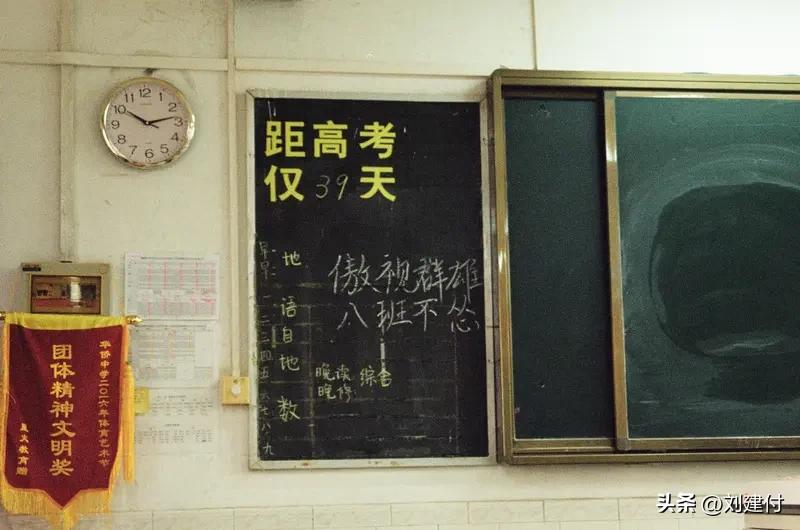 距高考
仅39天
傲视群雄
八班不怂
早
早
一
二
三
四
五
六
七
八
九
地
语
自
地
数
晚读 综合
晚修
华侨中学二〇一六年体育艺术节
团体精神文明奖
12
1
2
3
4
5
6
7
8
9
10
11
头条 @刘建付